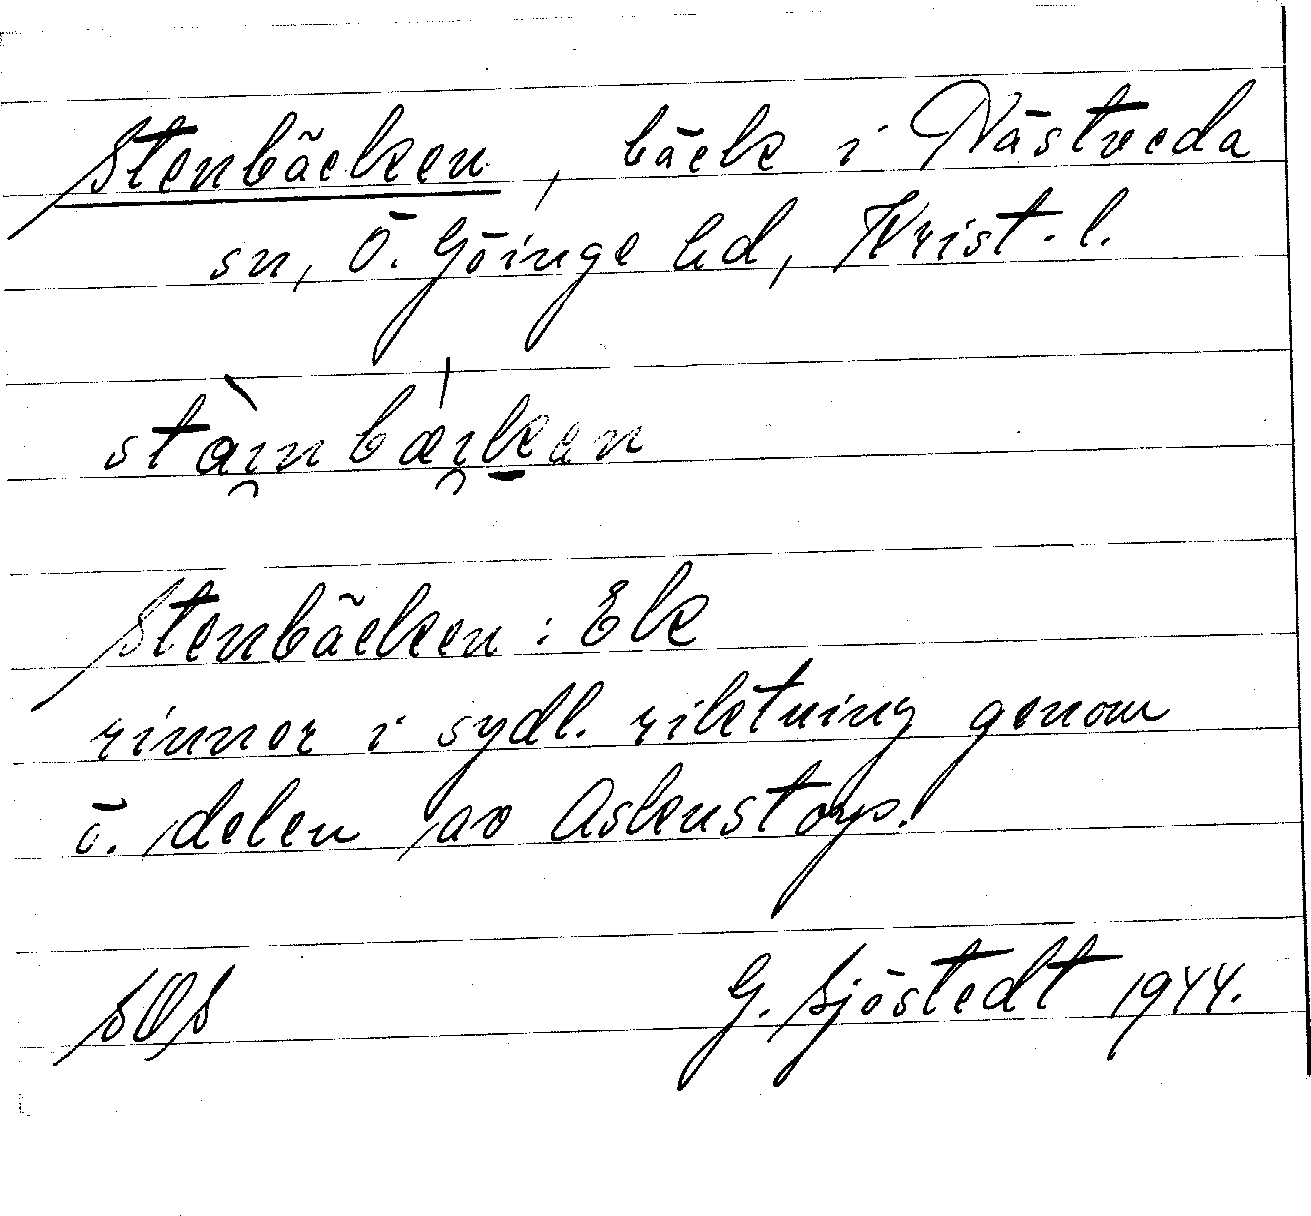 Stenbäcken, bäck i Nästveda
sn, Ö. Göinge hd, Krist. l.
stàı̯nbæ̍ı̯ḵen
Stenbäcken: Ek
rinner i sydl. riktning genom
ö. delen av Askenstorp.
SOS G. Sjöstedt 1944.